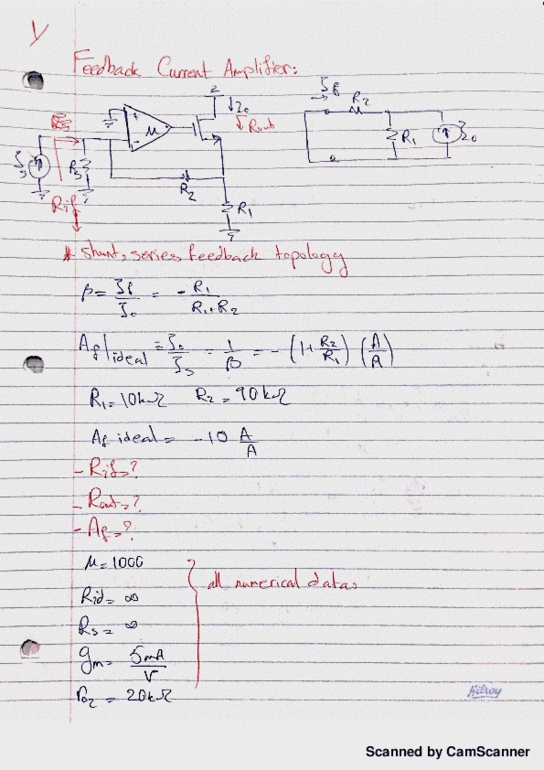 Feedback Current Amplifier:
Is
Rs
+
-
μ
2
Io
Rout
R2
R1
Rif
If
R2
R1
Io
* shunt, series feedback topology
β = If/Io = - R1/(R1+R2)
Af|ideal = Io/Is = 1/β = - (1 + R2/R1) (A/A)
R1 = 10kΩ R2 = 90kΩ
Af ideal = -10 A/A
- Rif = ?
- Rout = ?
- Af = ?
μ = 1000
Rid = ∞
all numerical datas
Rs = ∞
gm = 5mA/V
ro2 = 20kΩ
Scanned by CamScanner